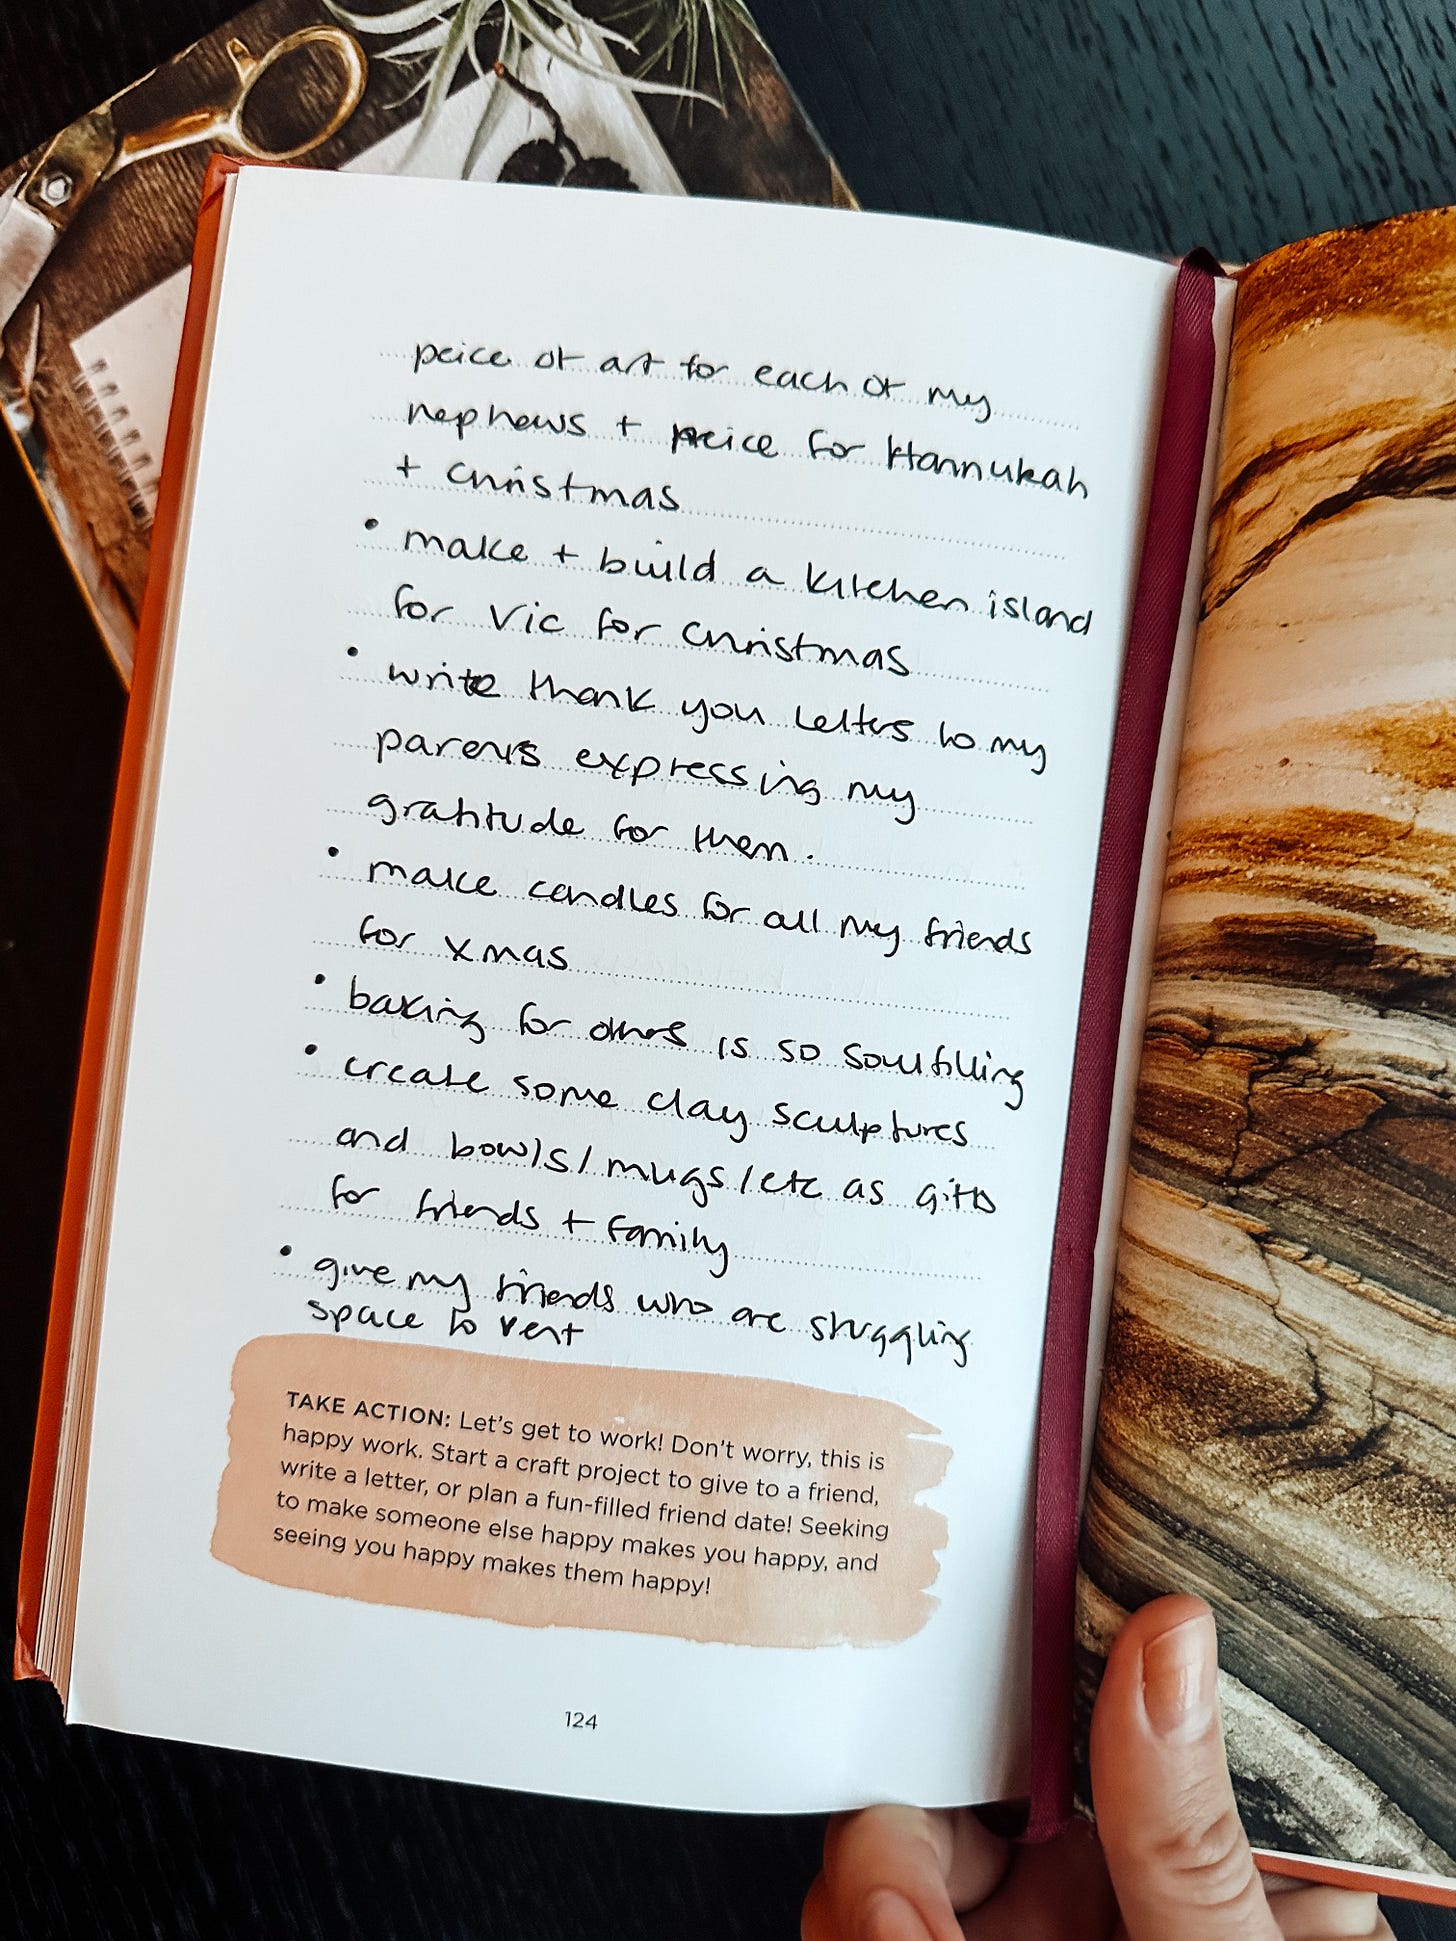 peice of art for each of my
nephews + peice for Hannukah
+ christmas
• make + build a kitchen island
for Vic for christmas
• write thank you letters to my
parents expressing my
gratitude for them.
• make candles for all my friends
for xmas
• baking for others is so soulfilling
• create some clay sculptures
and bowls/mugs/etc as gifts
for friends + family
• give my friends who are struggling
space to vent
TAKE ACTION: Let's get to work! Don't worry, this is
happy work. Start a craft project to give to a friend,
write a letter, or plan a fun-filled friend date! Seeking
to make someone else happy makes you happy, and
seeing you happy makes them happy!
124